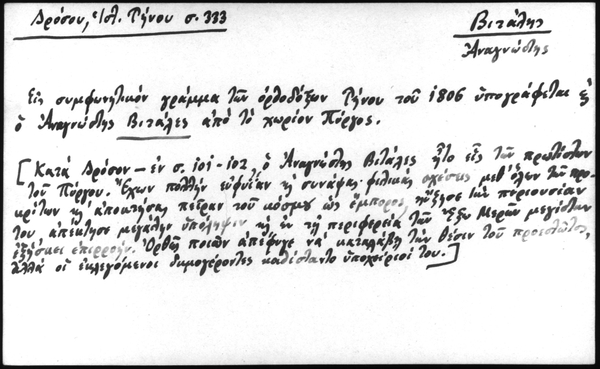 Δρόσου, Ἱστ. Τήνου σ. 333
Βιτάλης
Ἀναγνώστης
Εἰς συμφωνητικόν γράμμα τῶν ὀρθοδόξων Τήνου τοῦ 1806 ὑπογράφεται
ὁ Ἀναγνώστης Βιτάλες ἀπό τό χωρίον Πύργος.
[Κατά Δρόσον – ἐν σ. 101-102, ὁ Ἀναγνώστης Βιτάλες ἦτο εἷς τῶν πρωτίστων
τοῦ Πύργου. Ἔχων πολλήν εὐφυΐαν κ συνάψας φιλικάς σχέσεις μεθ' ὅλων τῶν προ-
κρίτων κ ἀποκτήσας πεῖραν τοῦ κόσμου ὡς ἔμπορος, ηὔξησε τήν περιουσίαν
του, ἀπέκτησε μεγάλην ὑπόληψιν κ ἐν τῇ περιφερείᾳ τῶν Ἔξω Μερῶν μεγίστην
ἐξήσκει ἐπιρροήν. Ὀρθῶς ποιῶν ἀπέφυγε νά καταλάβῃ τήν θέσιν τοῦ προεστῶτος,
ἀλλά οἱ ἐκλεγόμενοι δημογέροντες καθίσταντο ὑποχείριοί του.]